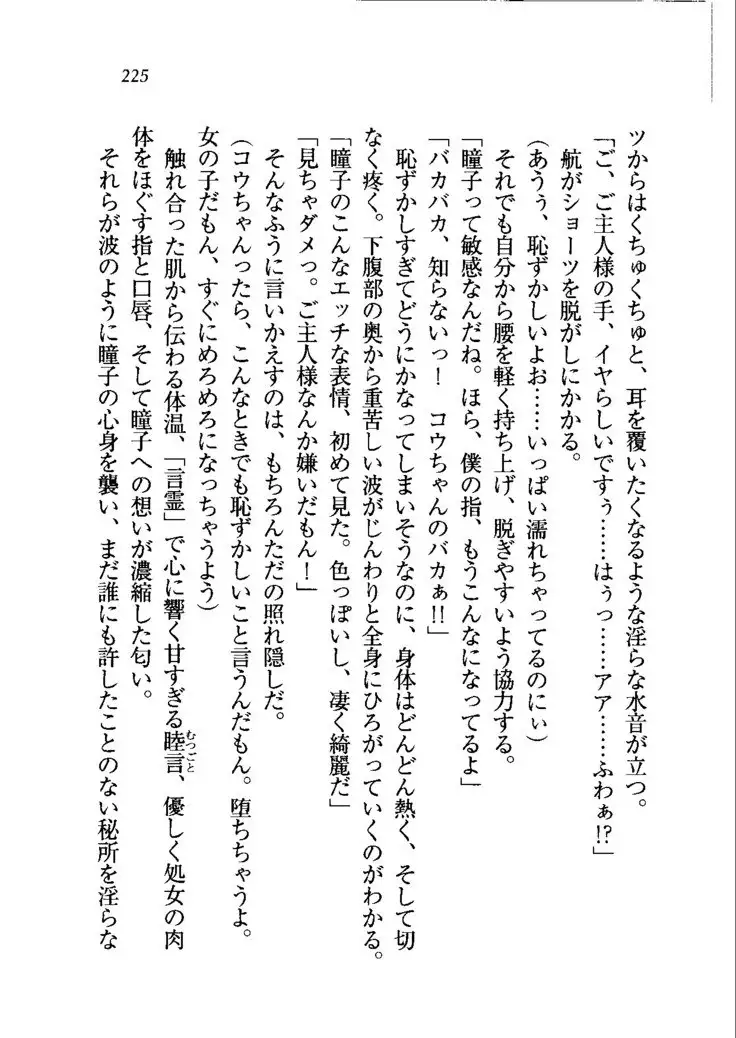 225
ツからはくちゅくちゅと、耳を覆いたくなるような淫らな水音が立つ。
「ご、ご主人様の手、イヤらしいですぅ……はぅっ……アア……ふわぁ!?」
航がショーツを脱がしにかかる。
(あうぅ、恥ずかしいよお……いっぱい濡れちゃってるのにぃ)
それでも自分から腰を軽く持ち上げ、脱ぎやすいよう協力する。
「瞳子って敏感なんだね。ほら、僕の指、もうこんなになってるよ」
「バカバカ、知らないっ! コウちゃんのバカぁ!!」
恥ずかしすぎてどうにかなってしまいそうなのに、身体はどんどん熱く、そして切
なく疼く。下腹部の奥から重苦しい波がじんわりと全身にひろがっていくのがわかる。
「瞳子のこんなエッチな表情、初めて見た。色っぽいし、凄く綺麗だ」
「見ちゃダメっ。ご主人様なんか嫌いだもん!」
そんなふうに言いかえすのは、もちろんただの照れ隠しだ。
(コウちゃんったら、こんなときでも恥ずかしいこと言うんだもん。堕ちちゃうよ。
女の子だもん、すぐにめろめろになっちゃうよう)
触れ合った肌から伝わる体温、「言霊」で心に響く甘すぎる睦言、優しく処女の肉
むつごと
体をほぐす指と口唇、そして瞳子への想いが濃縮した匂い。
それらが波のように瞳子の心身を襲い、まだ誰にも許したことのない秘所を淫らな